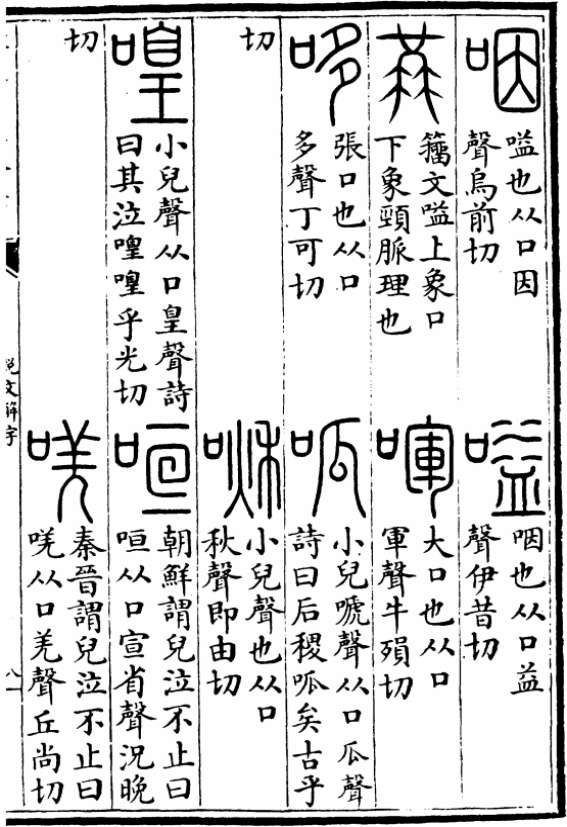 咽
嗌也从口因
聲烏前切
嗌
咽也从口益
聲伊昔切
籒文嗌上象口
下象頸脈理也
喗
大口也从口
軍聲牛殞切
哆
張口也从口
多聲丁可切
呱
小兒嗁聲从口瓜聲
詩曰后稷呱矣古乎
切
啾
小兒聲也从口
秋聲即由切
喤
小兒聲从口皇聲詩
曰其泣喤喤乎光切
咺
朝鮮謂兒泣不止曰
咺从口宣省聲況晚
切
唴
秦晉謂兒泣不止曰
唴从口羌聲丘尚切
說文解字